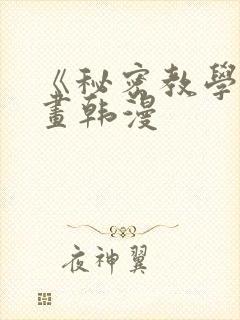 《秘密教學
畫韩漫
夜神翼